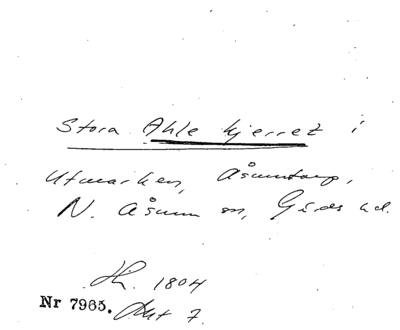 Stora Ahle kjerret i
Utmarken, Åsumtorp,
N. Åsum sn, Gärds hd.
1804
Nr 7965. Akt 7